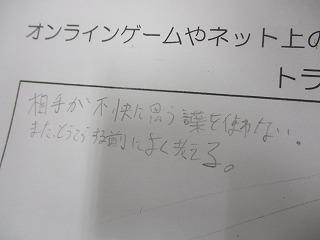 オンラインゲームやネット上の
トラ
相手が不快に思う言葉を使わない。
また、とうこうする前によく考える。